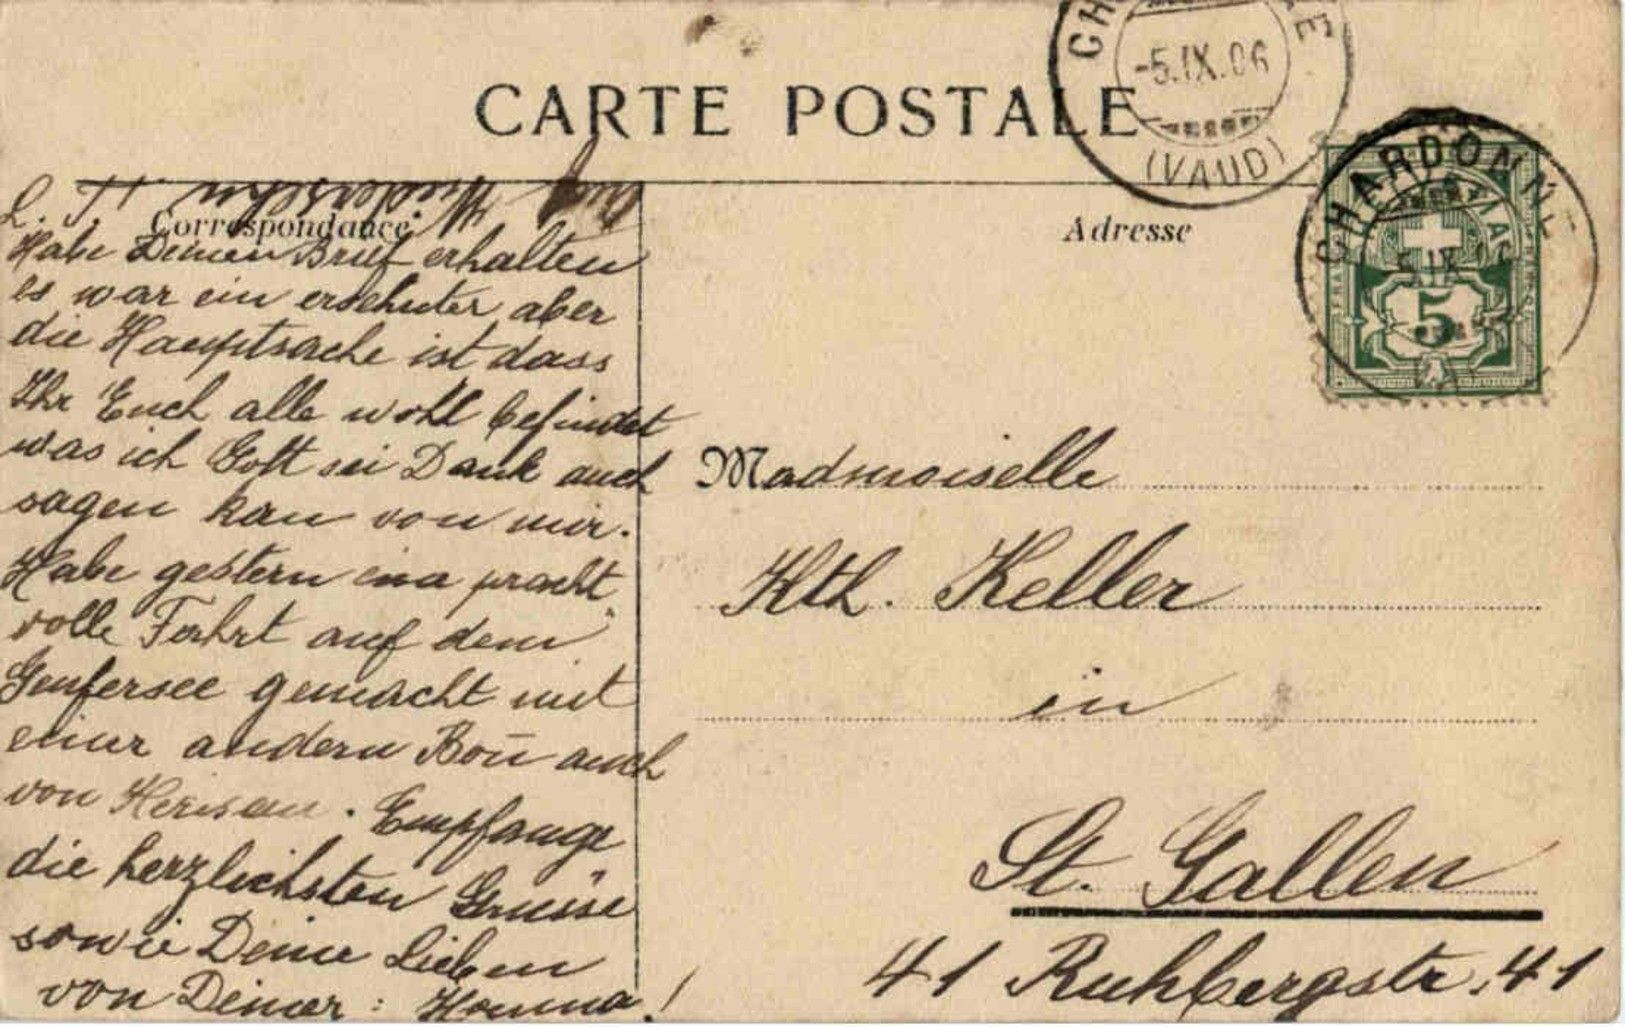 CARTE POSTALE
-5.IX.06
(VAUD)
CHARDONNE
5
Correspondance
Adresse
L.
Habe Deinen Brief erhalten
es war ein ersehnter aber
die Hauptsache ist dass
Ihr Euch alle wohl befindet
was ich Gott sei Dank auch
sagen kan von mir.
Habe gestern eine pracht
volle Fahrt auf dem
Genfersee gemacht mit
einer andern auch
von Herisau. Empfange
die herzlichsten Grüsse
sowie Deine Lieben
von Deiner:
Madmoiselle
Kth. Keller
in
St. Gallen
41 Ruhbergstr. 41